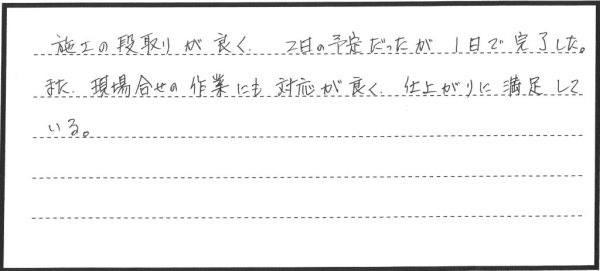 施工の段取りが良く、2日の予定だったが1日で完了した。
また、現場合せの作業にも対応が良く、仕上がりに満足して
いる。